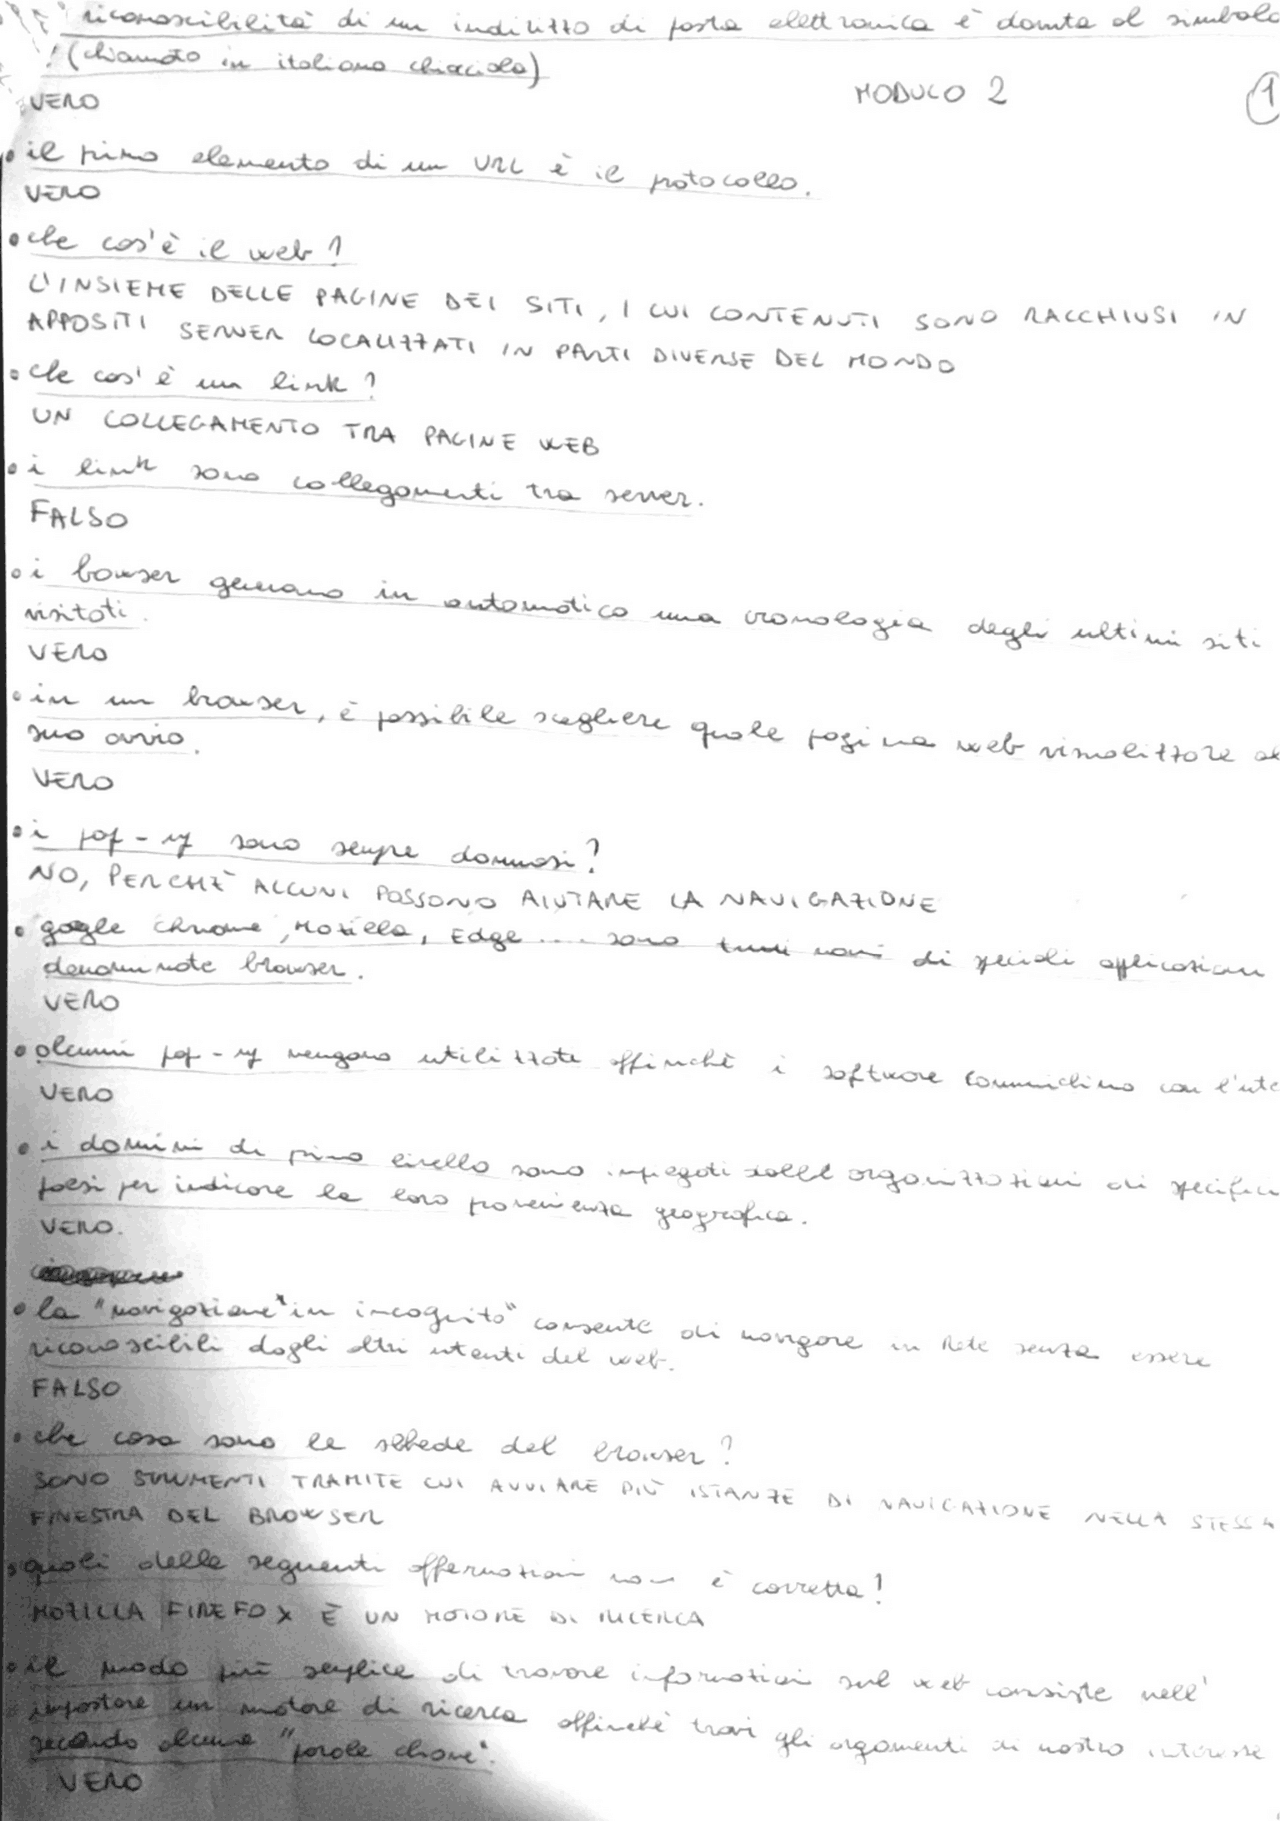 riconoscibilità di un indirizzo di posta elettronica è dovuta al simbolo
(chiamato in italiano chiocciola)
MODULO 2 1
VERO
• il primo elemento di un URL è il protocollo.
VERO
• che cos'è il web?
L'INSIEME DELLE PAGINE DEI SITI, I CUI CONTENUTI SONO RACCHIUSI IN
APPOSITI SERVER LOCALIZZATI IN PARTI DIVERSE DEL MONDO
• che cos'è un link?
UN COLLEGAMENTO TRA PAGINE WEB
• i link sono collegamenti tra server.
FALSO
• i bowser generano in automatico una cronologia degli ultimi siti
visitati.
VERO
• in un browser, è possibile scegliere quale pagina web visualizzare al
suo avvio.
VERO
• i pop-up sono sempre dannosi?
NO, PERCHÈ ALCUNI POSSONO AIUTARE LA NAVIGAZIONE
• google chrome, Mozilla, Edge .... sono tutti nomi di speciali applicazioni
denominate browser.
VERO
• alcuni pop-up vengono utilizzati affinchè i software comunichino con l'ute
VERO
• i domini di primo livello sono impiegati dalle organizzazioni di specifici
paesi per indicare la loro provenienza geografica.
VERO.
• la "navigazione" in incognito" consente di navigare in Rete senza essere
riconoscibili dagli altri utenti del web.
FALSO
• che cosa sono le schede del browser?
SONO STRUMENTI TRAMITE CUI AVVIARE PIÙ ISTANZE DI NAVIGAZIONE NELLA STESSA
FINESTRA DEL BROWSER
• quali delle seguenti affermazioni non è corretta?
MOZILLA FIREFOX È UN MOTORE DI RICERCA
• il modo più semplice di trovare informazioni sul web consiste nell'
impostare un motore di ricerca affinchè trovi gli argomenti di nostro interesse
secondo alcune "parole chiave".
VERO